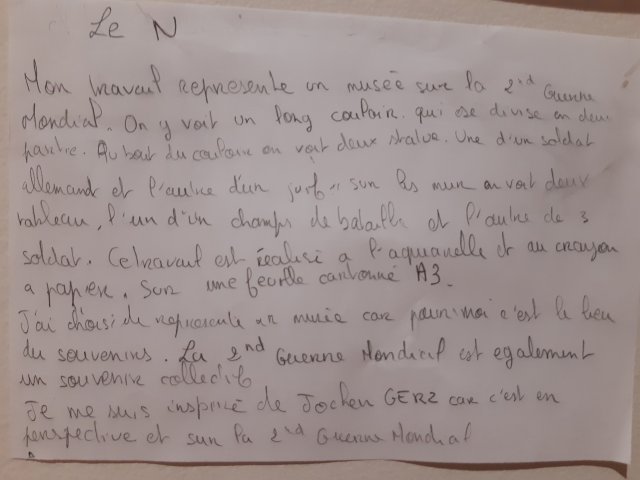 Le N
Mon travail represente un musée sur la 2nd Guerre
Mondial. On y voit un long couloir qui se divise en deux
partie. Au bout du couloir on voit deux statue. Une d'un soldat
allemand et l'autre d'un juif sur les mur on voit deux
tableau, l'un d'un champs de bataille et l'autre de 3
soldat. Ce travail est réalisé a l'aquarelle et au crayon
a papier. Sur une feuille cartonné A3.
J'ai choisi de represente un musée car pour moi c'est le lieu
du souvenirs. La 2nd Guerre Mondial est egalement
un souvenir collectif
Je me suis inspiré de Jochen GERZ car c'est en
perspective et sur la 2nd Guerre Mondial